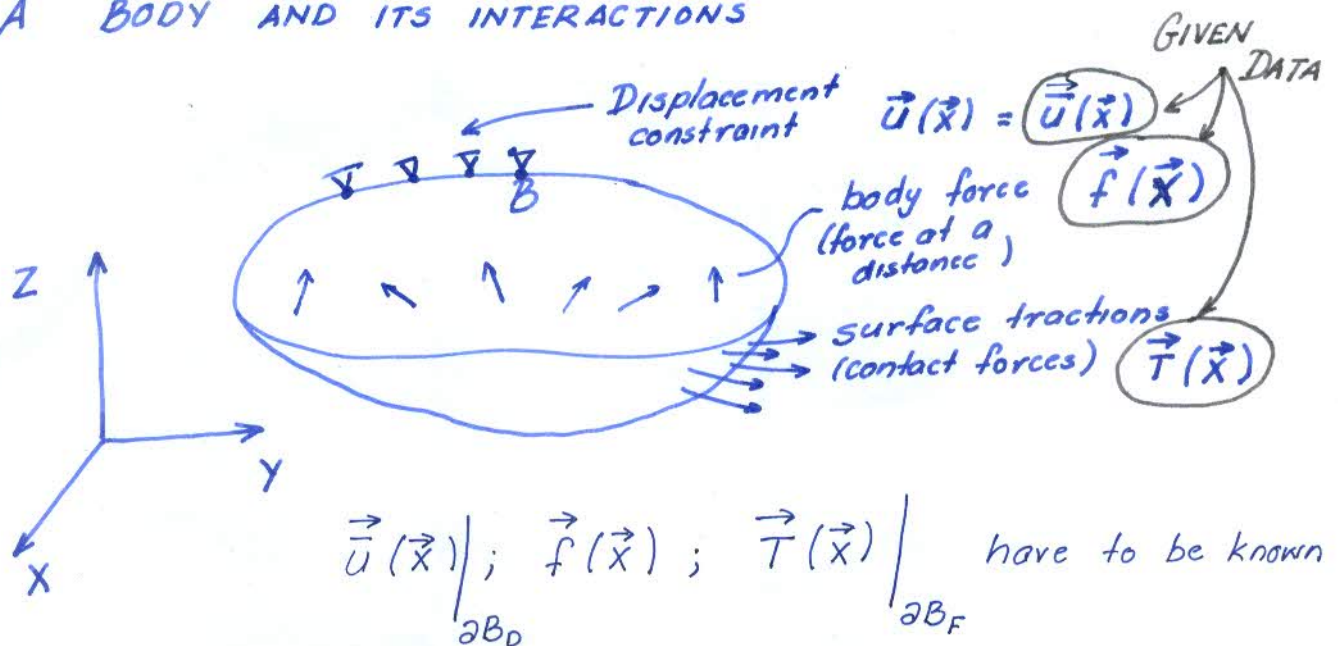 A BODY AND ITS INTERACTIONS
GIVEN
DATA
Displacement
constraint
u⃗(x⃗) = ū⃗(x⃗)
f⃗(x⃗)
B
body force
(force at a
distance)
surface tractions
(contact forces)
T⃗(x⃗)
Z
Y
X
ū⃗(x⃗)|∂B_D ; f⃗(x⃗) ; T⃗(x⃗)|∂B_F have to be known